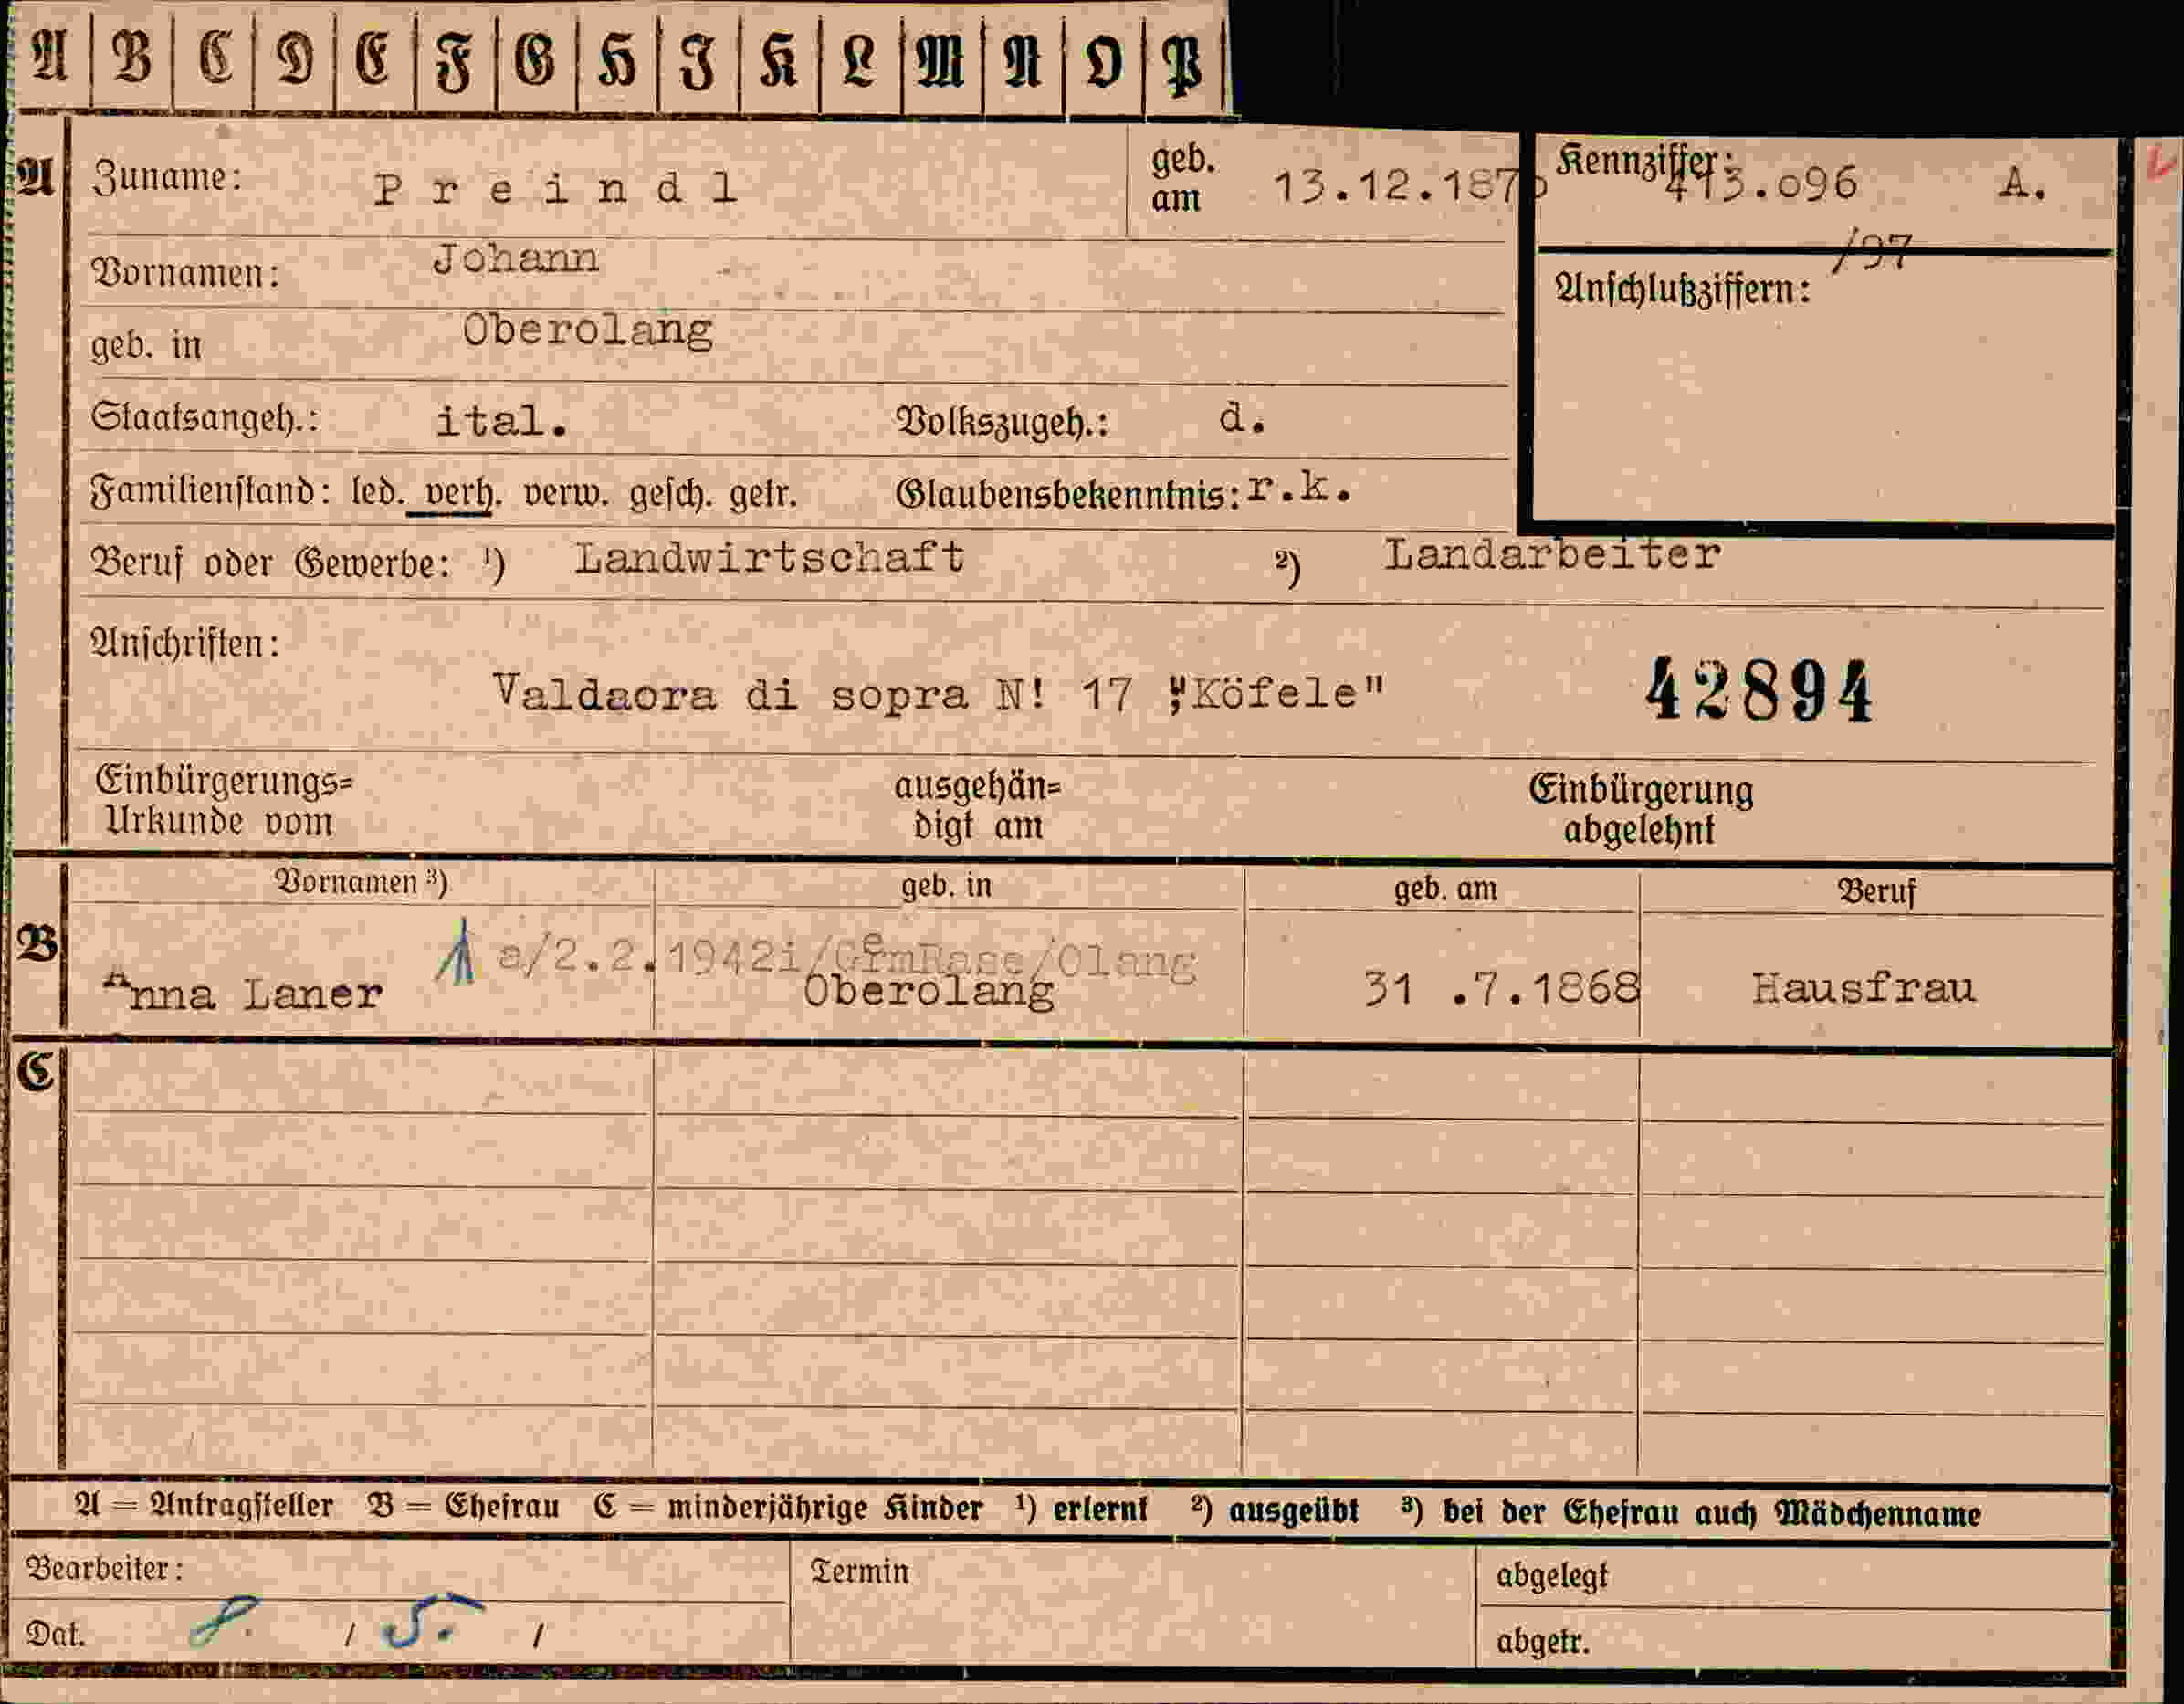 A B C D E F G H I K L M N O P
A Zuname: Preindl geb. am 13.12.187 Kennziffer: 413.096 A.
/97
Vornamen: Johann
Anschlußziffern:
geb. in Oberolang
Staatsangeh.: ital. Volkszugeh.: d.
Familienstand: led. verh. verw. gesch. getr. Glaubensbekenntnis: r.k.
Beruf oder Gewerbe: 1) Landwirtschaft 2) Landarbeiter
Anschriften:
Valdaora di sopra N! 17 "Köfele" 42894
Einbürgerungs= ausgehän= Einbürgerung
Urkunde vom digt am abgelehnt
Vornamen 3) geb. in geb. am Beruf
B a/2.2.1942i/ /Olang
Anna Laner Oberolang 31 .7.1868 Hausfrau
C
A = Antragsteller B = Ehefrau C = minderjährige Kinder 1) erlernt 2) ausgeübt 3) bei der Ehefrau auch Mädchenname
Bearbeiter: Termin abgelegt
Dat. 8. / 5. / abgetr.